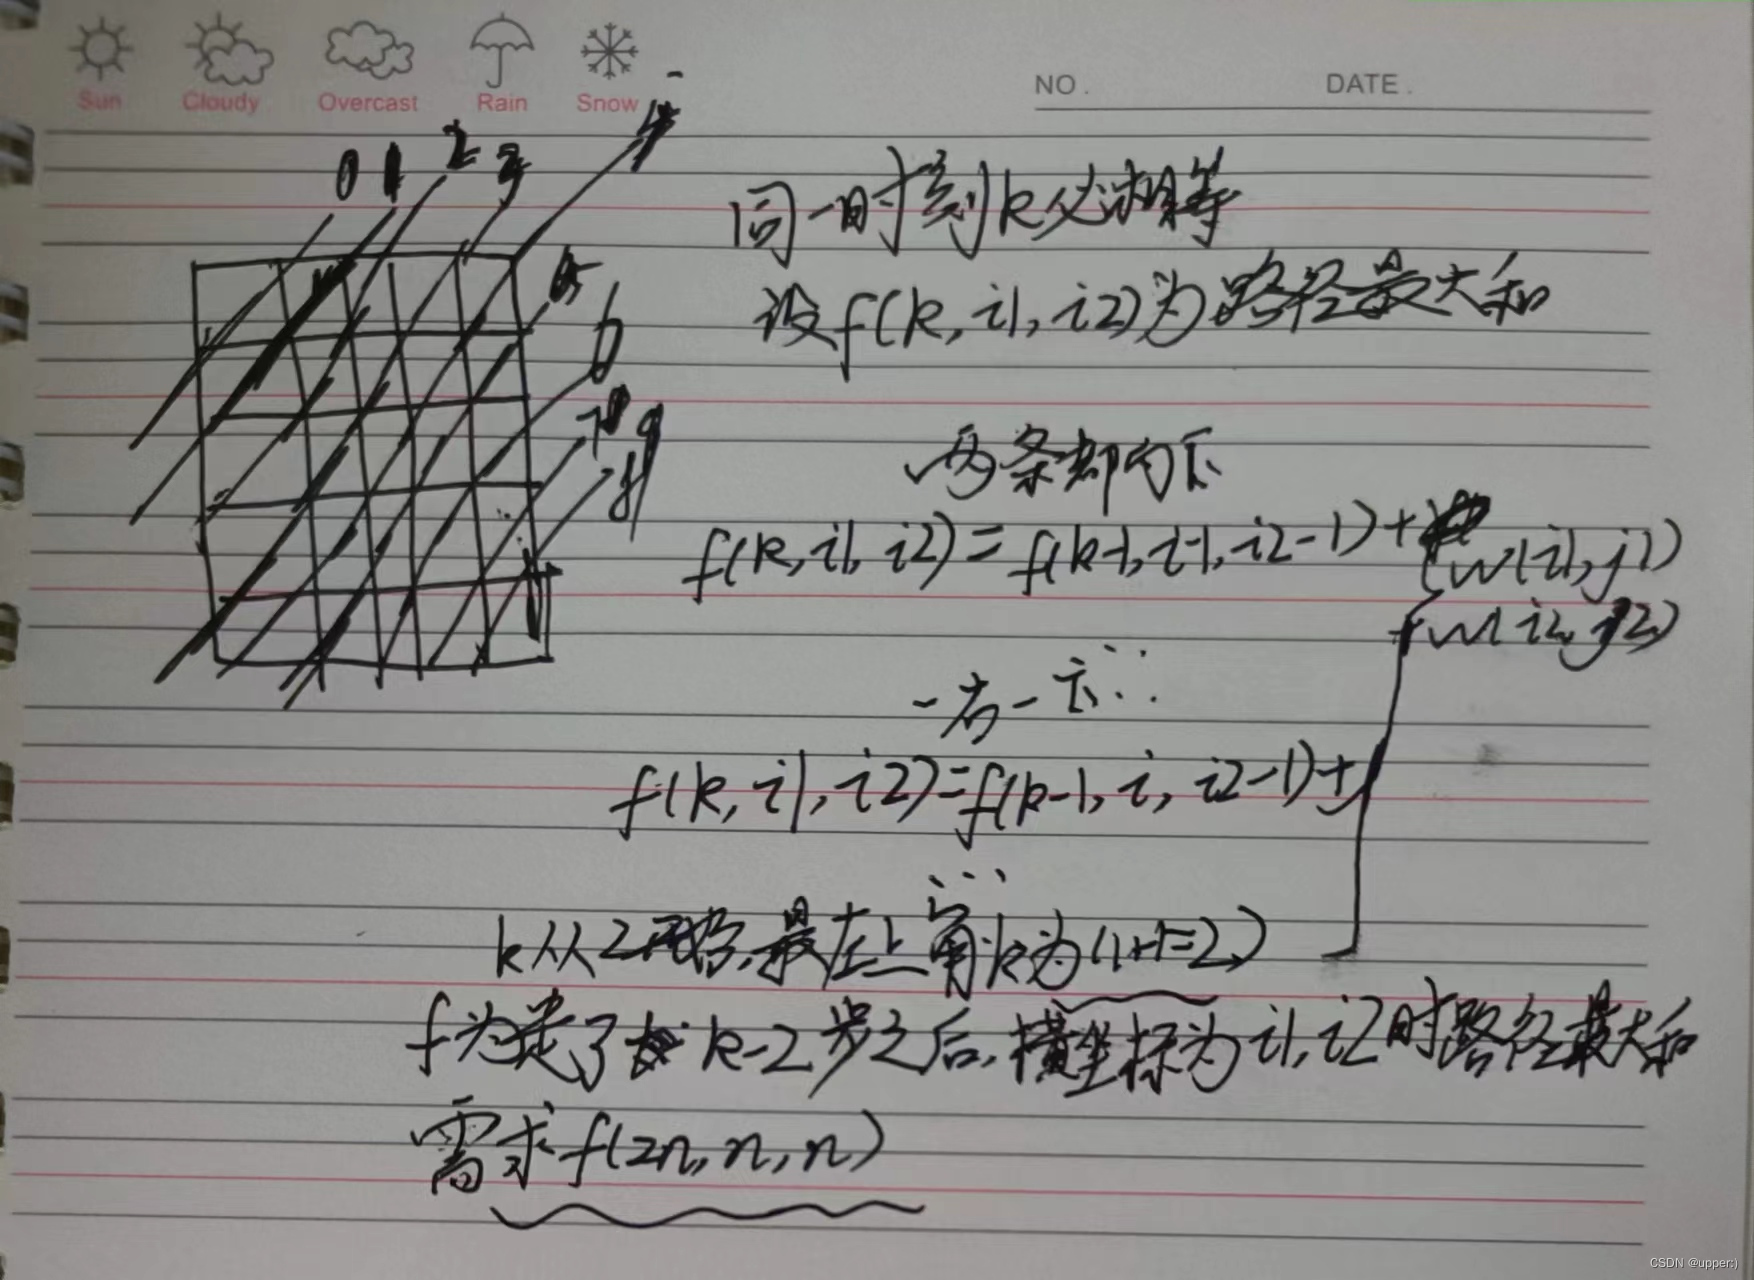 Sun Cloudy Overcast Rain Snow
NO. DATE.
0 1 2 3 4
5
6
7 8 9
同一时刻k必相等
设f(k,i1,i2)为路径最大和
两条都向下
f(k,i1,i2)=f(k-1,i-1,i2-1)+{w(i1,j1)
{w(i2,j2)
一右一下...
f(k,i1,i2)=f(k-1,i,i2-1)+
...
k从2开始,最左上角k为(1+1=2)
f为走了k-2步之后,横坐标为i1,i2时路径最大和
需求f(2n,n,n)
CSDN @upper:)